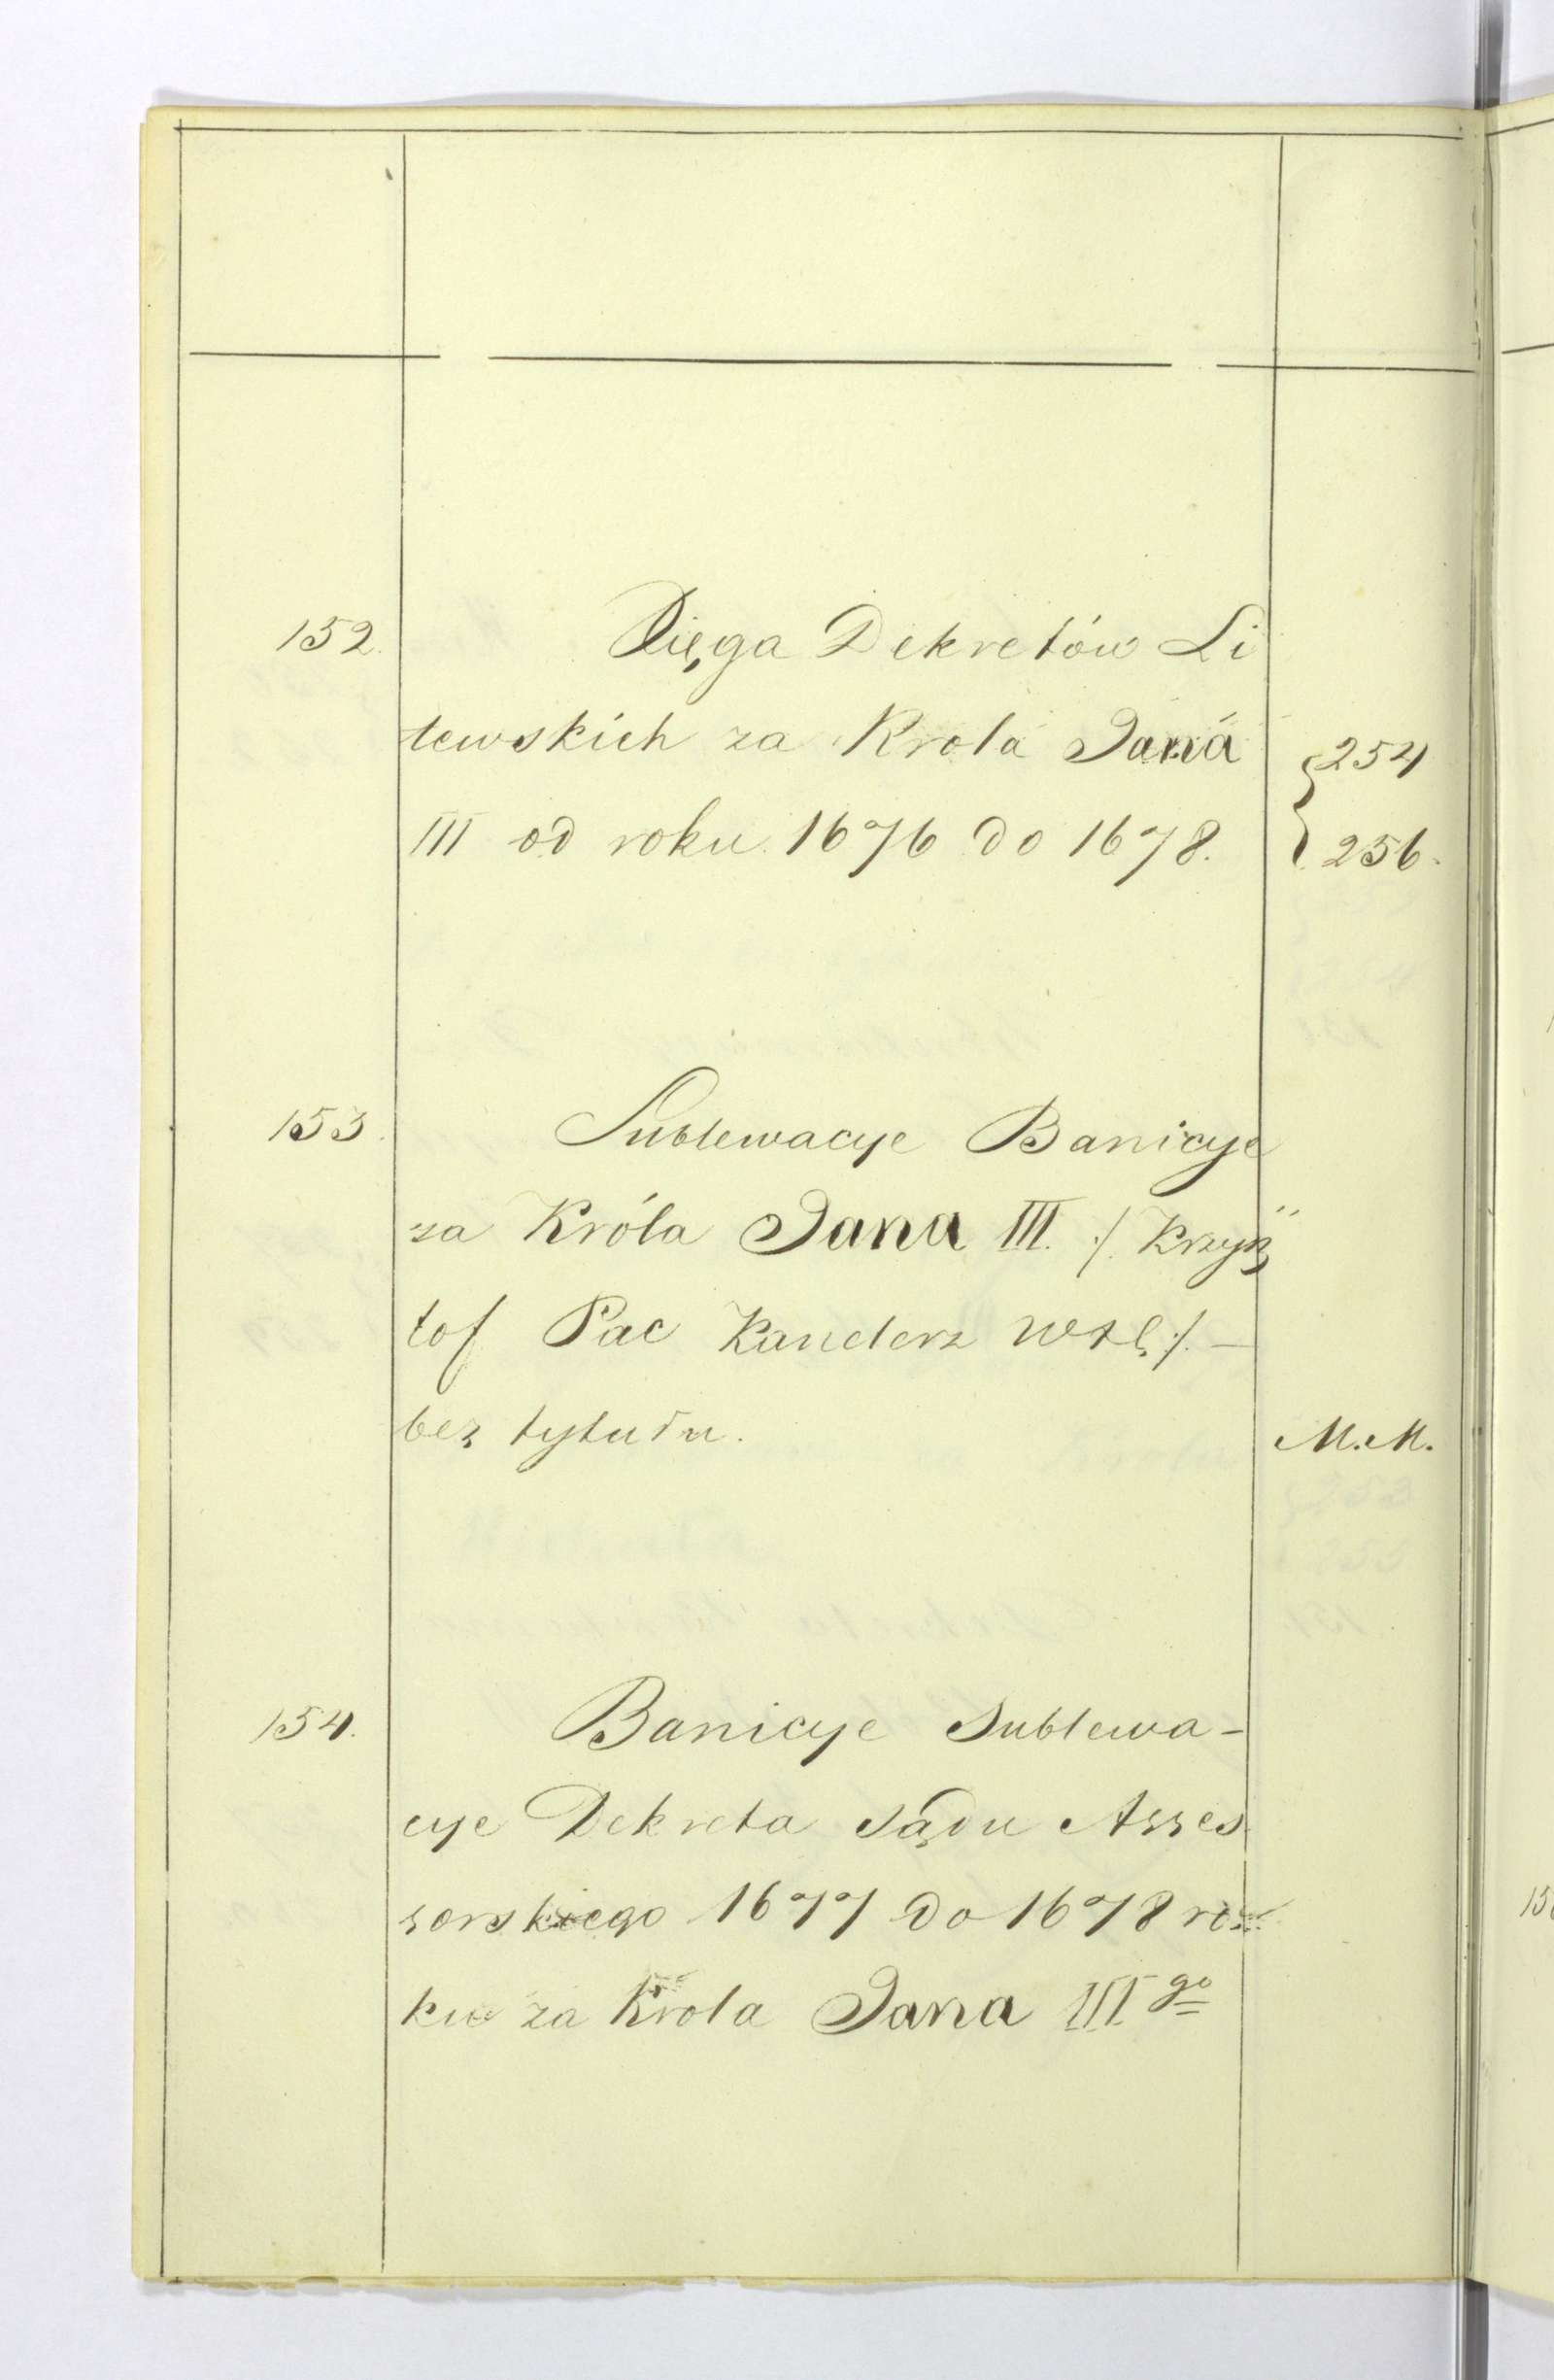 152. Xięga Dekretów Li
tewskich za Krola Jana
{254
III od roku 1676 do 1678.
256.
153. Sublewacye Banicye
za Króla Jana III. /. Krzyż
tof Pac Kanclerz WXL./. —
bez tytułu. M.M.
154. Banicye Sublewa-
cye Dekreta Sądu Asses
sorskiego 1677 do 1678 ro
ku za Krola Jana III go
15